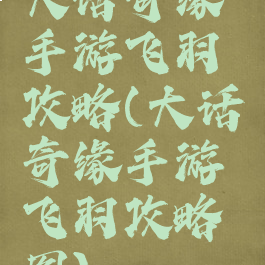 大话奇缘
手游飞羽
攻略(大话
奇缘手游
飞羽攻略
图)